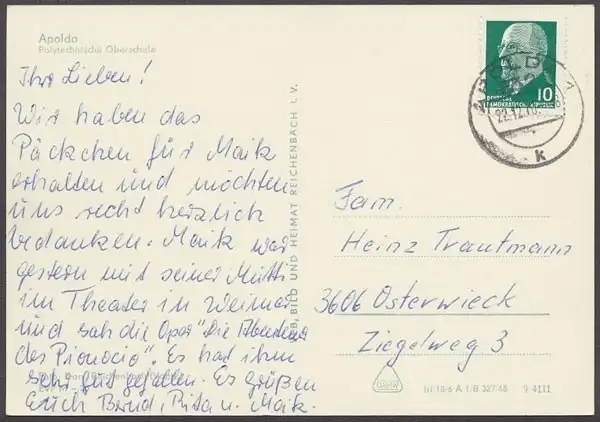 Apolda
Polytechnische Oberschule
Ihr Lieben!
Wir haben das
Päckchen für Maik
erhalten und möchten
uns recht herzlich
bedanken. Maik war
gestern mit seiner Mutti
im Theater in Weimar
und sah die Oper "Die Abenteuer
des Pionocio". Es hat ihm
sehr gut gefallen. Es grüßen
Euch Bernd, Rita u. Maik.
VEB, BILD UND HEIMAT REICHENBACH I. V.
10
DEUTSCHE
DEMOKRATISCHE REPUBLIK
APOLDA 1
22.12.
k
Fam.
Heinz Trautmann
3606 Osterwieck
Ziegelweg 3
III/18/6 A 1/B 327/68 9 4111